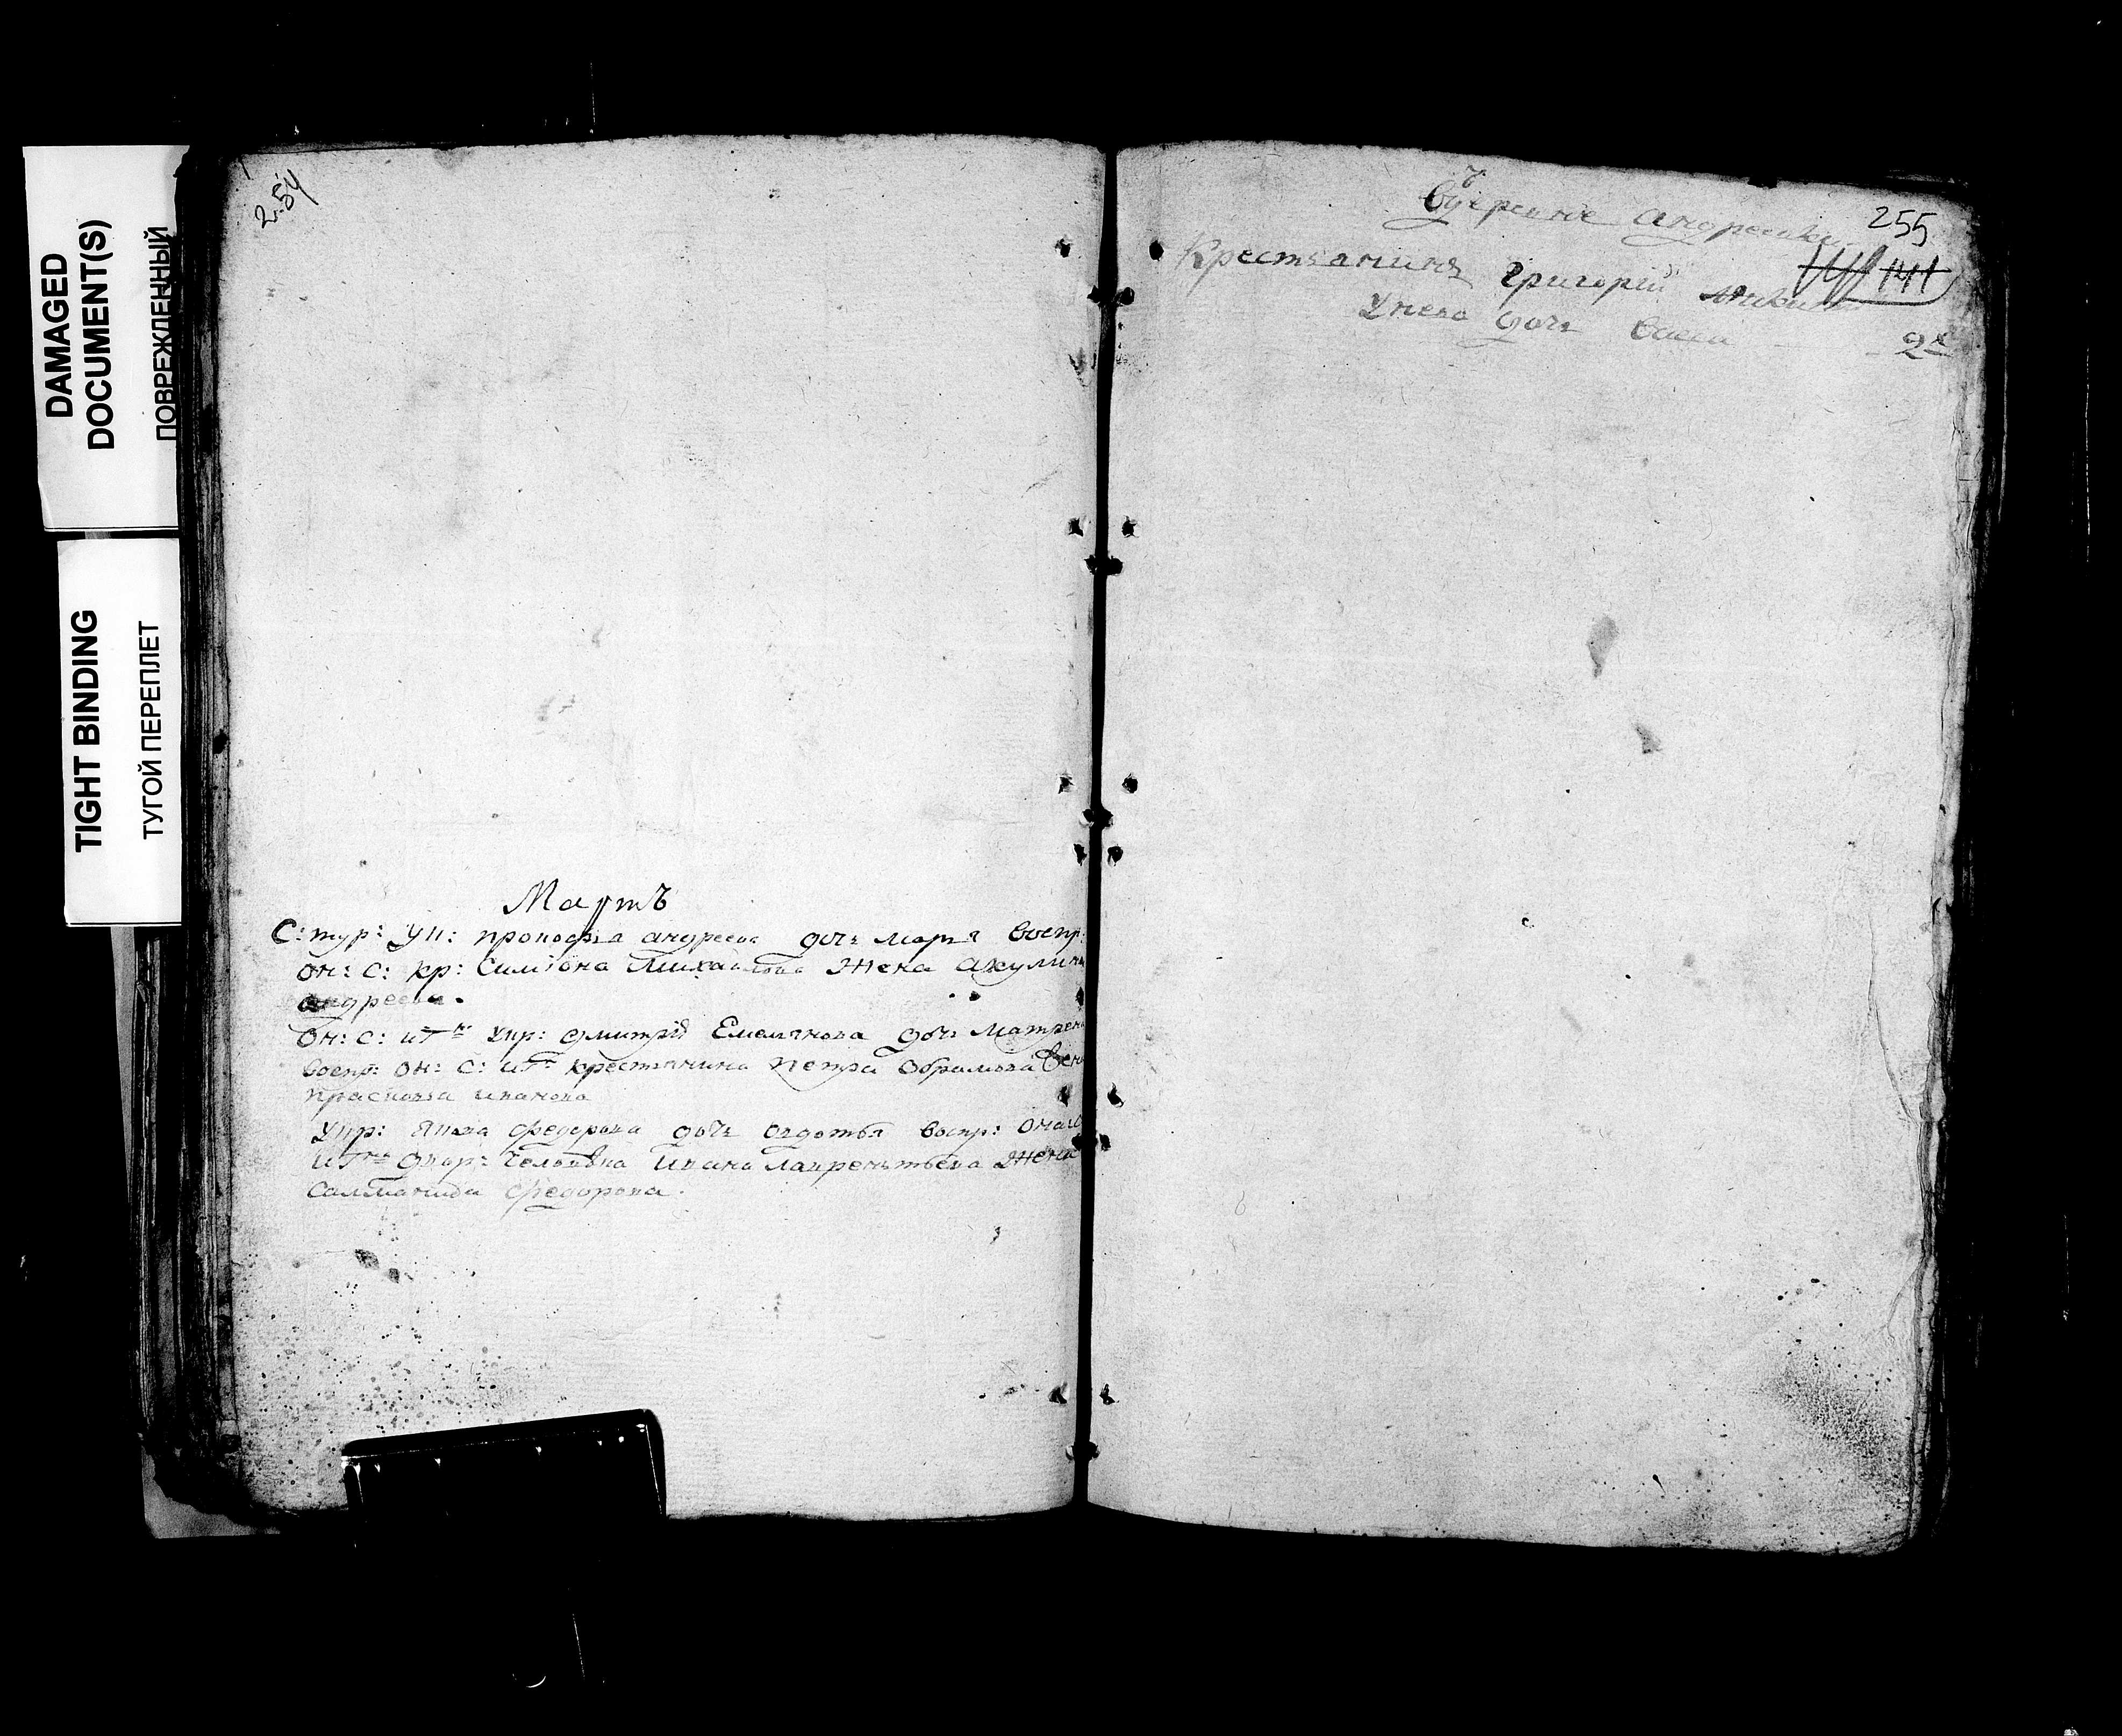 DAMAGED
DOCUMENT(S)
ПОВРЕЖДЕННЫЙ
TIGHT BINDING
ТУГОЙ ПЕРЕПЛЕТ
254
Мартъ
С: тур: уп: прокофья андреева дочь марья воспр:
он: с: кр: Симіона Михаилова жена акулина
андреева.
он: с: упр: дмитрій Емельянова дочь матрена
воспр: он: с: крестьянина петра жена
прасковья иванова
упр: федорова дочь овдотья воспр: онаго
двор: человека ивана лаврентьева жена
саломанида федорова.
255
141
Крестьянинъ григорій
унево дочь васса 2